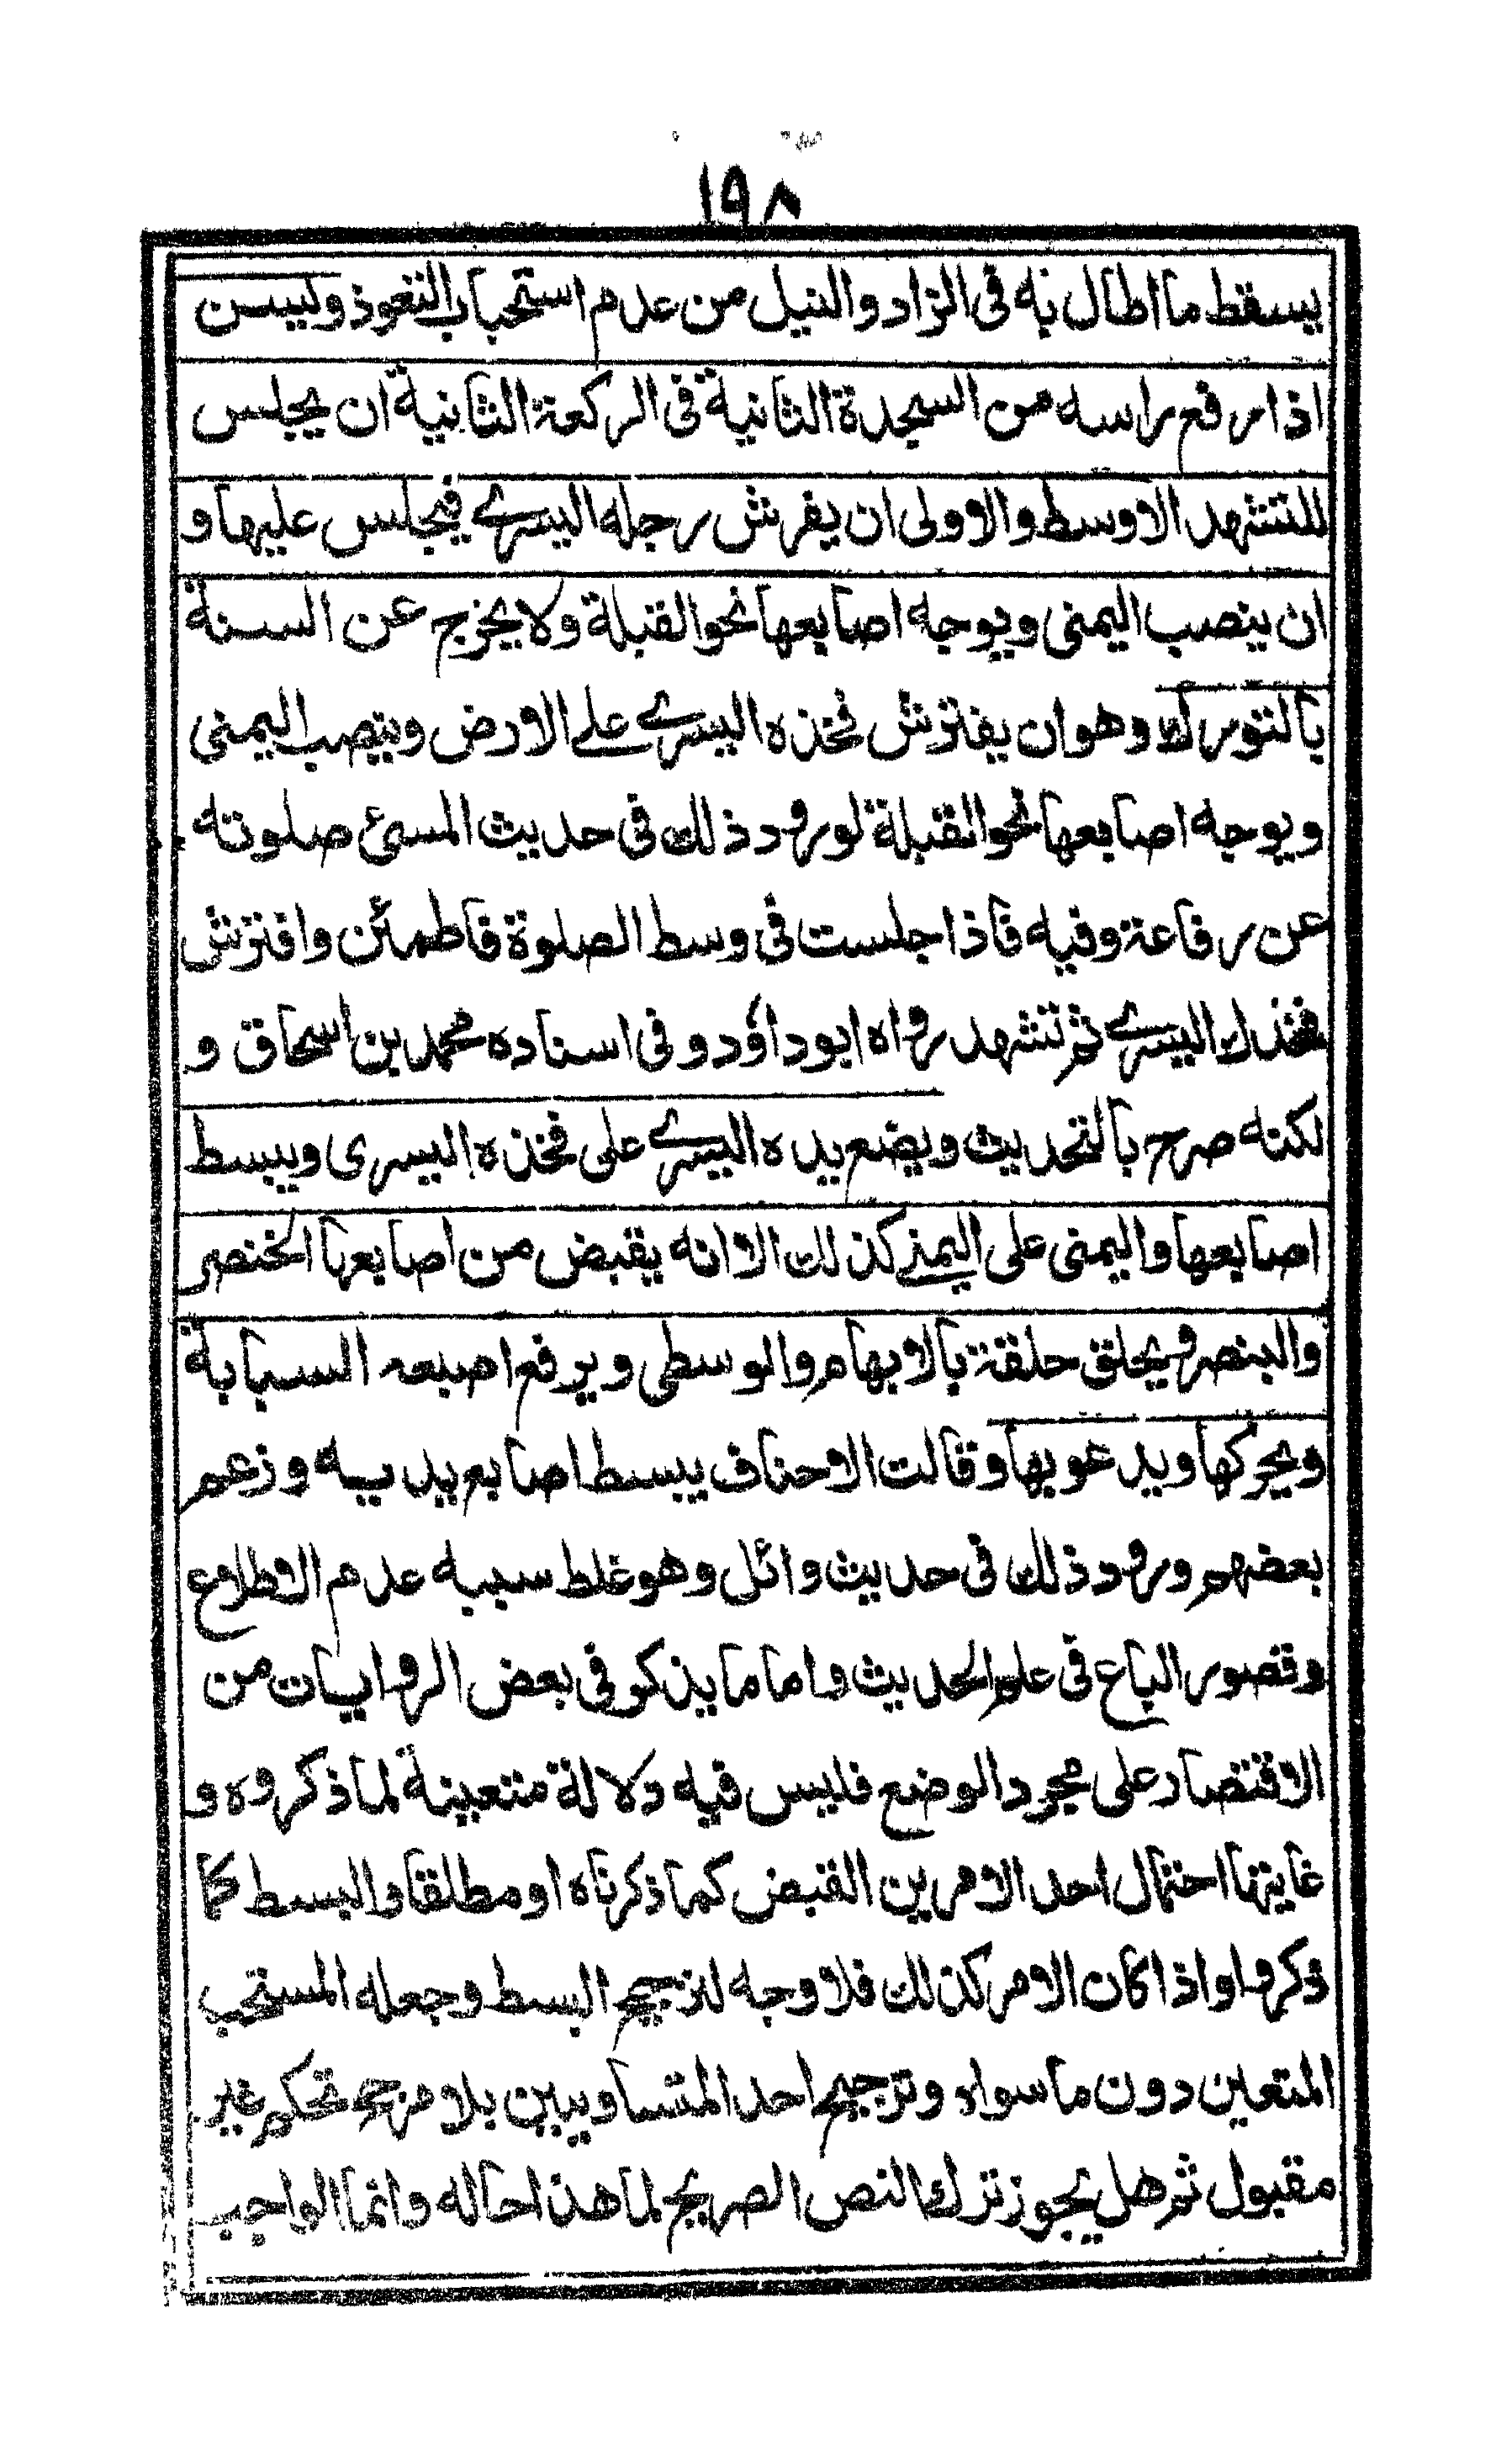 ١٩٨
يسقط ما اطال به فى الزاد والنيل من عدم استحباب التعوذ وليسن
اذا رفع راسه من السجدة الثانية فى الركعة الثانية ان يجلس
للتشهد الاوسط والاولى ان يفرش رجله اليسرے فيجلس عليها و
ان ينصب اليمنى ويوجه اصابعها نحو القبلة ولا يخرج عن السنة
بالتورك وهو ان يفترش فخذه اليسرے علے الارض وينصب اليمنى
ويوجه اصابعها نحو القبلة لورود ذلك فى حديث المسئ صلوته
عن رفاعة وفيه فاذا جلست فى وسط الصلوة فاطمئن وافترش
فخذك اليسرے ثم تشهد رواه ابو داؤد وفى اسناده محمد بن اسحاق و
لكنه صرح بالتحديث ويضع يده اليسرے على فخذه اليسرى ويبسط
اصابعها واليمنى على اليمنے كذلك الا انه يقبض من اصابعها الخنصر
والبنصر ويحلق حلقة بالابهام والوسطى ويرفع اصبعه السبابة
ويحركها ويدعو بها وقالت الاحناف يبسط اصابع يديه وزعم
بعضهم ورود ذلك فى حديث وائل وهو غلط سببه عدم الاطلاع
وقصور الباع فى علم الحديث واما ما يذكر فى بعض الروايات من
الاقتصاد على مجرد الوضع فليس فيه دلالة متعينة لما ذكروه و
غايتها احتمال احد الامرين القبض كما ذكرناه او مطلقا والبسط كما
ذكروا واذا كان الامر كذلك فلا وجه لترجيح البسط وجعله المستحب
المتعين دون ما سواه وترجيح احد المتساويين بلا مرجح تحكم غير
مقبول ثم هل يجوز ترك النص الصريح لما هذا حاله وانما الواجب